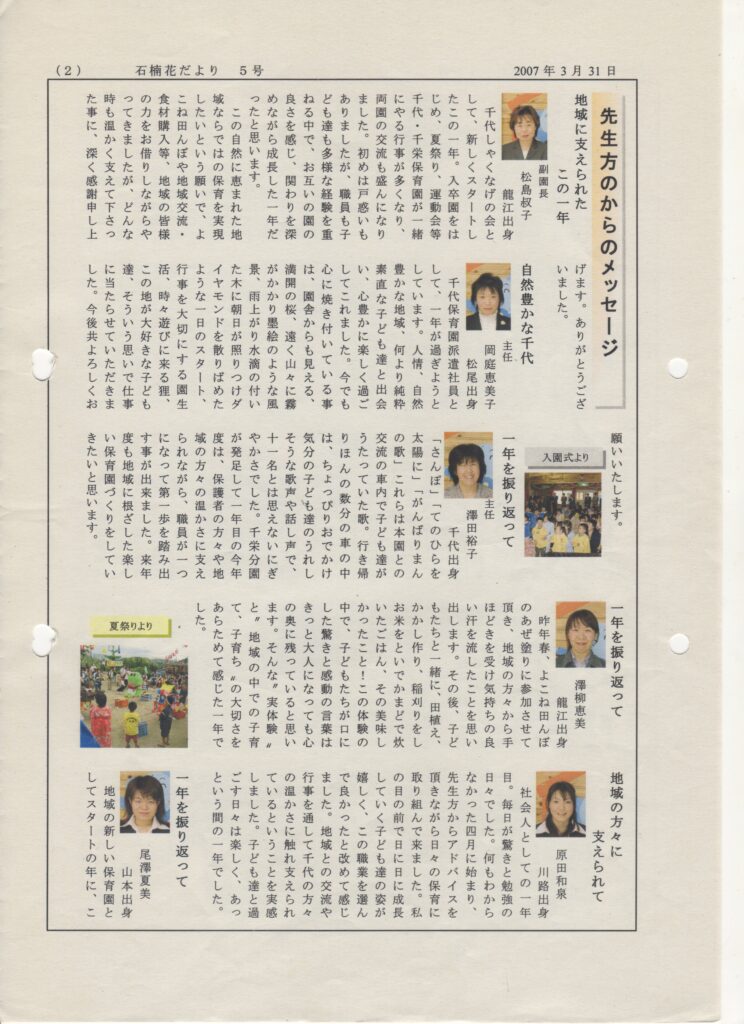 (2)
石楠花だより　5号
2007年3月31日
先生方のからのメッセージ
地域に支えられた
この一年
副園長
松島叔子
龍江出身
千代しゃくなげの会と
して、新しくスタートし
たこの一年。入卒園をは
じめ、夏祭り、運動会等
千代・千栄保育園が一緒
にやる行事が多くなり、
両園の交流も盛んになり
ました。初めは戸惑いも
ありましたが、職員も子
ども達も多様な経験を重
ねる中で、お互いの園の
良さを感じ、関わりを深
めながら成長した一年だ
ったと思います。
この自然に恵まれた地
域ならではの保育を実現
したいという願いで、よ
こね田んぼや地域交流・
食材購入等、地域の皆様
の力をお借りしながらや
ってきましたが、どんな
時も温かく支えて下さっ
た事に、深く感謝申し上
げます。ありがとうござ
いました。
自然豊かな千代
主任
岡庭恵美子
松尾出身
千代保育園派遣社員と
して、一年が過ぎようと
しています。人情、自然
豊かな地域、何より純粋
素直な子ども達と出会
い、心豊かに楽しく過ご
してこれました。今でも
心に焼き付いている事
は、園舎からも見える、
満開の桜、遠く山々に霧
がかかり墨絵のような風
景、雨上がり水滴の付い
た木に朝日が照りつけダ
イヤモンドを散りばめた
ような一日のスタート、
行事を大切にする園生
活、時々遊びに来る狸、
この地が大好きな子ども
達、そういう思いで仕事
に当たらせていただきま
した。今後共よろしくお
願いいたします。
入園式より
一年を振り返って
主任
澤田裕子
千代出身
「さんぽ」「てのひらを
太陽に」「がんばりまん
の歌」これらは本園との
交流の車内で子ども達が
うたっていた歌。行き帰
りほんの数分の車の中
は、ちょっぴりおでかけ
気分の子ども達のうれし
そうな歌声や話し声で、
十一名とは思えないにぎ
やかさでした。千栄分園
が発足して一年目の今年
度は、保護者の方々や地
域の方々の温かさに支え
られながら、職員が一つ
になって第一歩を踏み出
す事が出来ました。来年
度も地域に根ざした楽し
い保育園づくりをしてい
きたいと思います。
一年を振り返って
澤柳恵美
龍江出身
昨年春、よこね田んぼ
のあぜ塗りに参加させて
頂き、地域の方々から手
ほどきを受け気持ちの良
い汗を流したことを思い
出します。その後、子ど
もたちと一緒に、田植え、
かかし作り、稲刈りをし
お米をといでかまどで炊
いたごはん、その美味し
かったこと！この体験の
中で、子どもたちが口に
した驚きと感動の言葉は
きっと大人になっても心
の奥に残っていると思い
ます。そんな〝実体験〟
と〝地域の中での子育
て、子育ち〟の大切さを
あらためて感じた一年で
した。
夏祭りより
地域の方々に
支えられて
原田和泉
川路出身
社会人としての一年
目。毎日が驚きと勉強の
日々でした。何もわから
なかった四月に始まり、
先生方からアドバイスを
頂きながら日々の保育に
取り組んで来ました。私
の目の前で日に日に成長
していく子ども達の姿が
嬉しく、この職業を選ん
で良かったと改めて感じ
ました。地域との交流や
行事を通して千代の方々
の温かさに触れ支えられ
ているということを実感
しました。子ども達と過
ごす日々は楽しく、あっ
という間の一年でした。
一年を振り返って
尾澤夏美
山本出身
地域の新しい保育園と
してスタートの年に、こ